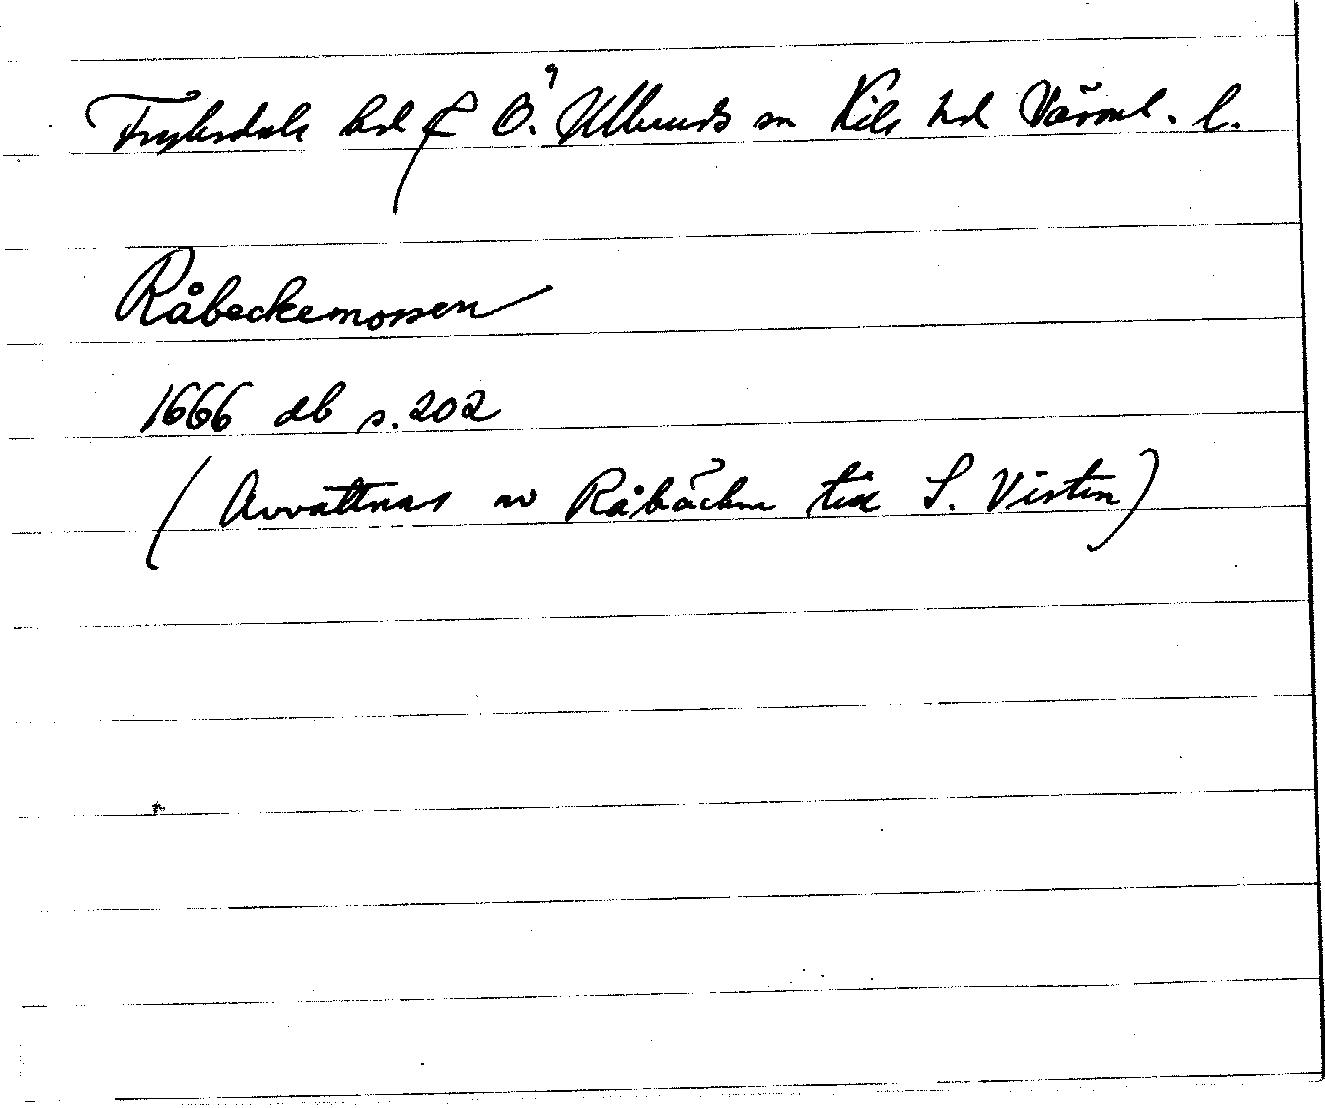 Fryksdals hd f Ö. Ulleruds sn Kils hd Värml. l.
Råbeckemossen
1666 db s. 202
(Avvattnas av Råbäcken till S. Visten)